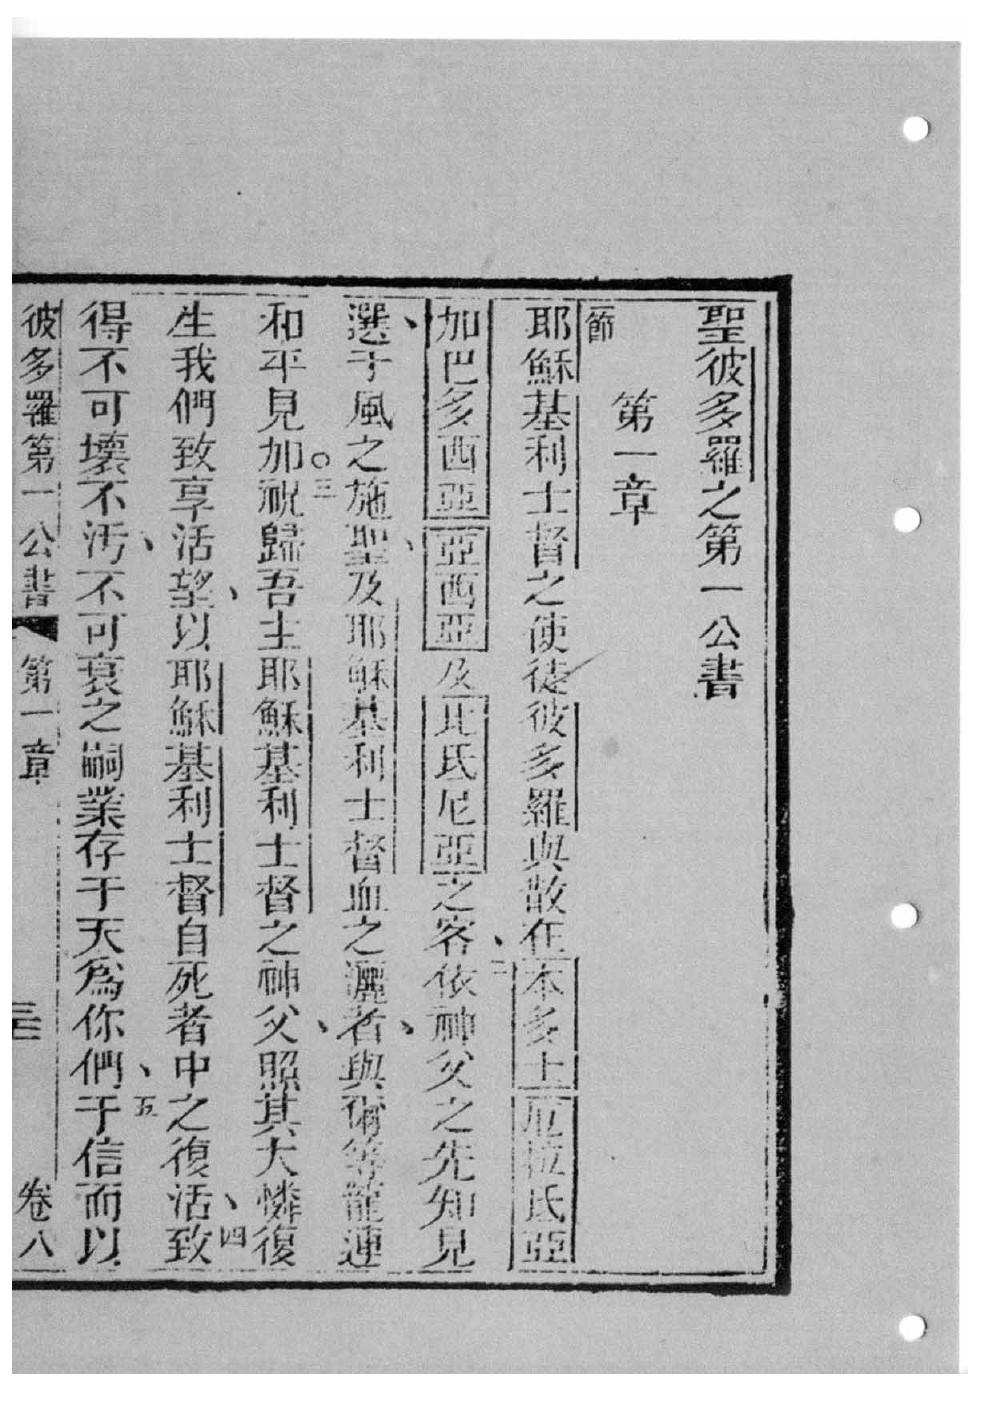 聖彼多羅之第一公書
第一章
節
耶穌基利士督之使徒彼多羅與散在本多士厄拉氏亞
加巴多西亞亞西亞及比氏尼亞之客、二依神父之先知見
選、于風之施聖、及耶穌基利士督血之灑者、與爾等寵連
和平見加。三祝歸吾主耶穌基利士督之神父、照其大憐復
生我們致享活望、以耶穌基利士督自死者中之復活、四致
得不可壞不污、不可衰之嗣業存于天爲你們、五于信而以
彼多羅第一公書 第一章 三 卷八